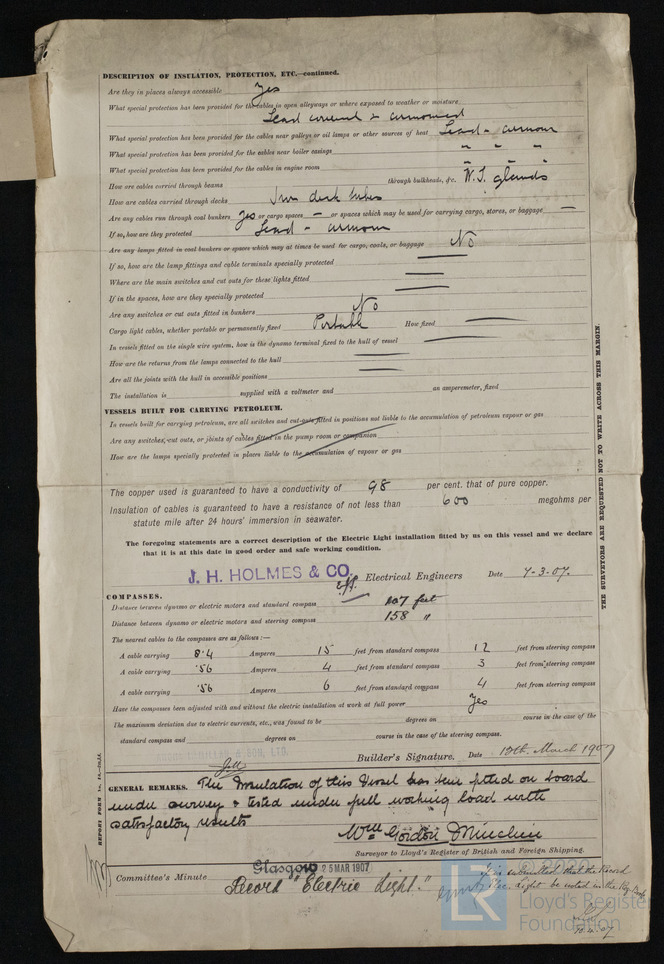 DESCRIPTION OF INSULATION, PROTECTION, ETC.—continued.
Are they in places always accessible Yes
What special protection has been provided for the cables in open alleyways or where exposed to weather or moisture
Lead covered & armoured
What special protection has been provided for the cables near galleys or oil lamps or other sources of heat Lead - armour
What special protection has been provided for the cables near boiler casings " " "
What special protection has been provided for the cables in engine room " " "
How are cables carried through beams through bulkheads, &c. W.T. glands
How are cables carried through decks Iron deck tubes
Are any cables run through coal bunkers Yes or cargo spaces — or spaces which may be used for carrying cargo, stores, or baggage —
If so, how are they protected Lead - armour
Are any lamps fitted in coal bunkers or spaces which may at times be used for cargo, coals, or baggage No
If so, how are the lamp fittings and cable terminals specially protected
Where are the main switches and cut outs for these lights fitted
If in the spaces, how are they specially protected
Are any switches or cut outs fitted in bunkers No
Cargo light cables, whether portable or permanently fixed Portable How fixed
In vessels fitted on the single wire system, how is the dynamo terminal fixed to the hull of vessel
How are the returns from the lamps connected to the hull
Are all the joints with the hull in accessible positions
The installation is supplied with a voltmeter and an amperemeter, fixed
VESSELS BUILT FOR CARRYING PETROLEUM.
In vessels built for carrying petroleum, are all switches and cut-outs fitted in positions not liable to the accumulation of petroleum vapour or gas
Are any switches, cut outs, or joints of cables fitted in the pump room or companion
How are the lamps specially protected in places liable to the accumulation of vapour or gas
The copper used is guaranteed to have a conductivity of 98 per cent. that of pure copper.
Insulation of cables is guaranteed to have a resistance of not less than 600 megohms per
statute mile after 24 hours' immersion in seawater.
The foregoing statements are a correct description of the Electric Light installation fitted by us on this vessel and we declare
that it is at this date in good order and safe working condition.
J. H. HOLMES & CO. Electrical Engineers Date 7-3-07.
COMPASSES.
Distance between dynamo or electric motors and standard compass feet
Distance between dynamo or electric motors and steering compass 158 "
The nearest cables to the compasses are as follows:—
A cable carrying 8.4 Amperes 15 feet from standard compass 12 feet from steering compass
A cable carrying .56 Amperes 4 feet from standard compass 3 feet from steering compass
A cable carrying .56 Amperes 6 feet from standard compass 4 feet from steering compass
Have the compasses been adjusted with and without the electric installation at work at full power Yes
The maximum deviation due to electric currents, etc., was found to be degrees on course in the case of the
standard compass and degrees on course in the case of the steering compass.
Builder's Signature. Date 12th. March 1907
GENERAL REMARKS. The Insulation of this Vessel has been fitted on board
under survey & tested under full working load with
satisfactory results
Wm Gordon
Surveyor to Lloyd's Register of British and Foreign Shipping.
Committee's Minute Glasgow 25 MAR 1907
Record "Electric Light."
It is submitted that the Record
Elec. Light be noted in the Reg. Book
10.4.07
THE SURVEYORS ARE REQUESTED NOT TO WRITE ACROSS THIS MARGIN.
LR
Lloyd's Register
Foundation